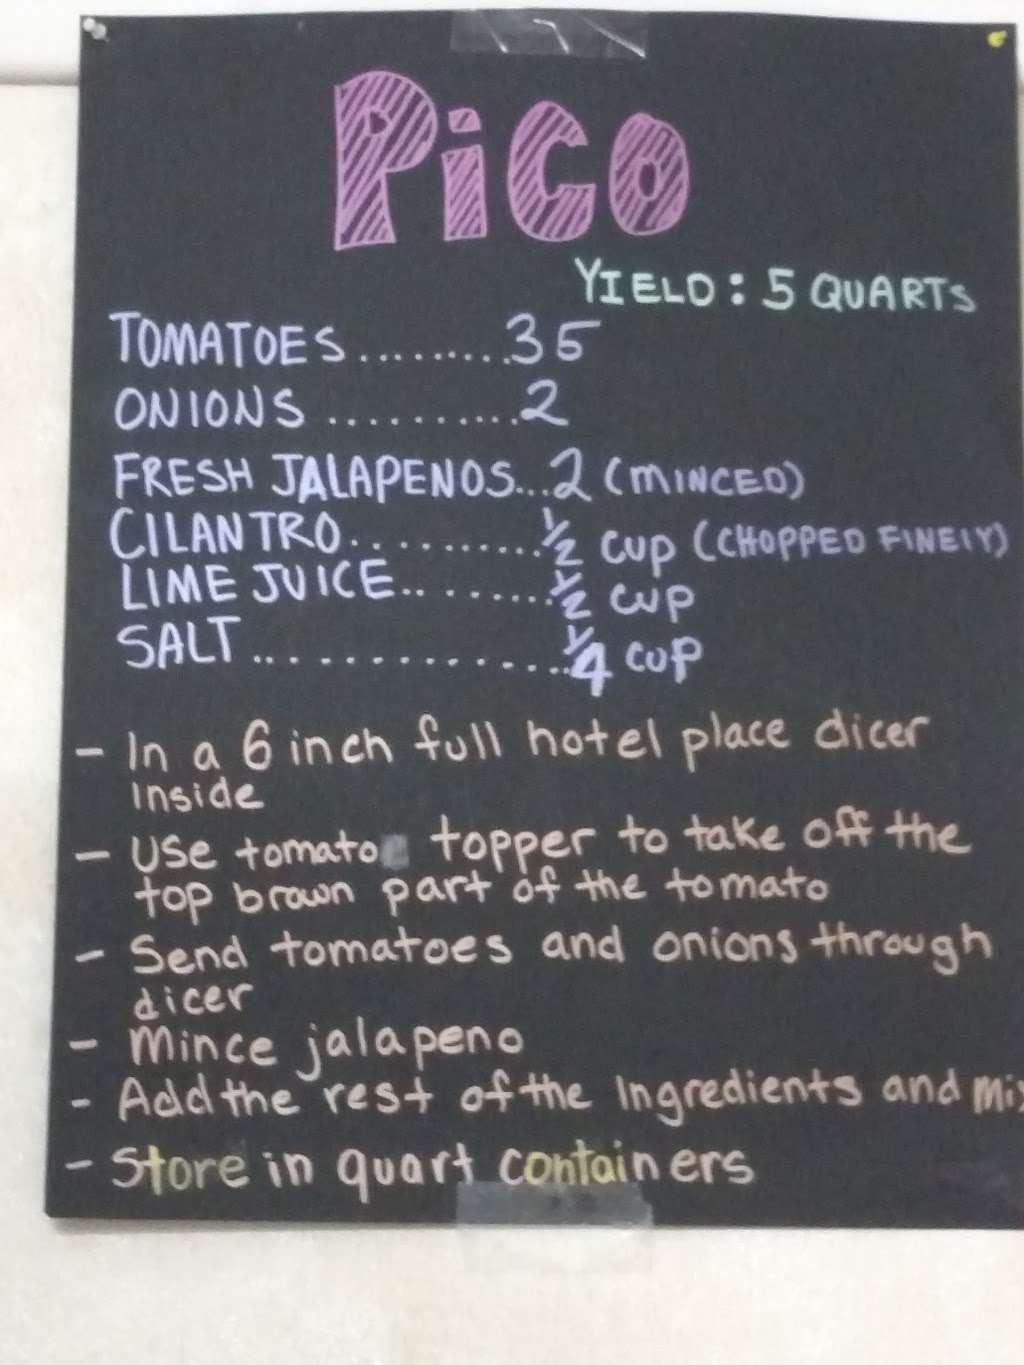 Pico
YIELD: 5 QUARTS
TOMATOES.........35
ONIONS ..........2
FRESH JALAPENOS...2 (MINCED)
CILANTRO..........1/2 cup (CHOPPED FINELY)
LIME JUICE.........1/2 cup
SALT ................1/4 cup
- In a 6 inch full hotel place dicer
inside
- Use tomato topper to take off the
top brown part of the tomato
- Send tomatoes and onions through
dicer
- Mince jalapeno
- Add the rest of the Ingredients and mix
- Store in quart containers